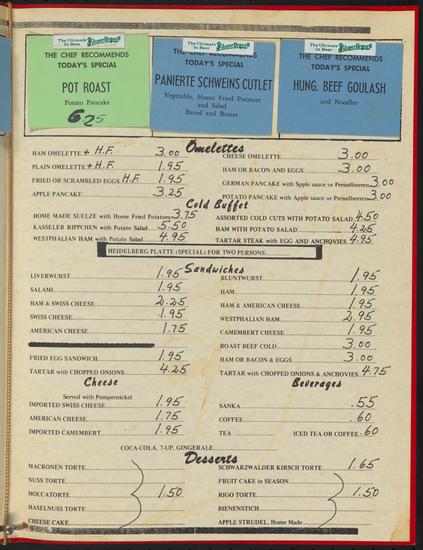 The Ultimate
In Beer
THE CHEF RECOMMENDS
TODAY'S SPECIAL
POT ROAST
Potato Pancake
625
The Ultimate
In Beer
THE CHEF RECOMMENDS
TODAY'S SPECIAL
PANIERTE SCHWEINS CUTLET
Vegetable, Home Fried Potatoes
and Salad
Bread and Butter
The Ultimate
In Beer
THE CHEF RECOMMENDS
TODAY'S SPECIAL
HUNG. BEEF GOULASH
and Noodles
Omelettes
HAM OMELETTE + H.F. 3.00
PLAIN OMELETTE + H.F. 1.95
FRIED OR SCRAMBLED EGGS H.F. 1.95
APPLE PANCAKE 3.25
CHEESE OMELETTE 3.00
HAM OR BACON and EGGS 3.00
GERMAN PANCAKE with Spple sauce or Preiselbeeren 3.00
POTATO PANCAKE with Apple sauce or Preiselbeeren 3.00
Cold Buffet
HOME MADE SUELZE with Home Fried Potatoes 3.75
KASSELER RIPPCHEN with Potato Salad 5.50
WESTPHALIAN HAM with Potato Salad 4.95
ASSORTED COLD CUTS WITH POTATO SALAD 4.50
HAM WITH POTATO SALAD 4.25
TARTAR STEAK with EGG AND ANCHOVIES 4.95
HEIDELBERG PLATTE (SPECIAL) FOR TWO PERSONS
Sandwiches
LIVERWURST 1.95
SALAMI 1.95
HAM & SWISS CHEESE 2.25
SWISS CHEESE 1.95
AMERICAN CHEESE 1.75
FRIED EGG SANDWICH 1.95
TARTAR with CHOPPED ONIONS 4.25
BLUNTWURST 1.95
HAM 1.95
HAM & AMERICAN CHEESE 1.95
WESTPHALIAN HAM 2.95
CAMEMBERT CHEESE 1.95
ROAST BEEF COLD 3.00
HAM OR BACON & EGGS 3.00
TARTAR with CHOPPED ONIONS & ANCHOVIES 4.75
Cheese
Served with Pumpernickel
IMPORTED SWISS CHEESE 1.95
AMERICAN CHEESE 1.75
IMPORTED CAMEMBERT 1.95
Beverages
SANKA .55
COFFEE .60
TEA ICED TEA OR COFFEE .60
COCA-COLA, 7-UP, GINGERALE
Desserts
MACRONEN TORTE
NUSS TORTE
MOCCATORTE 1.50
HASELNUSS TORTE
CHEESE CAKE
SCHWARZWALDER KIRSCH TORTE 1.65
FRUIT CAKE in SEASON
RIGO TORTE 1.50
BIENENSTICH
APPLE STRUDEL, Home Made